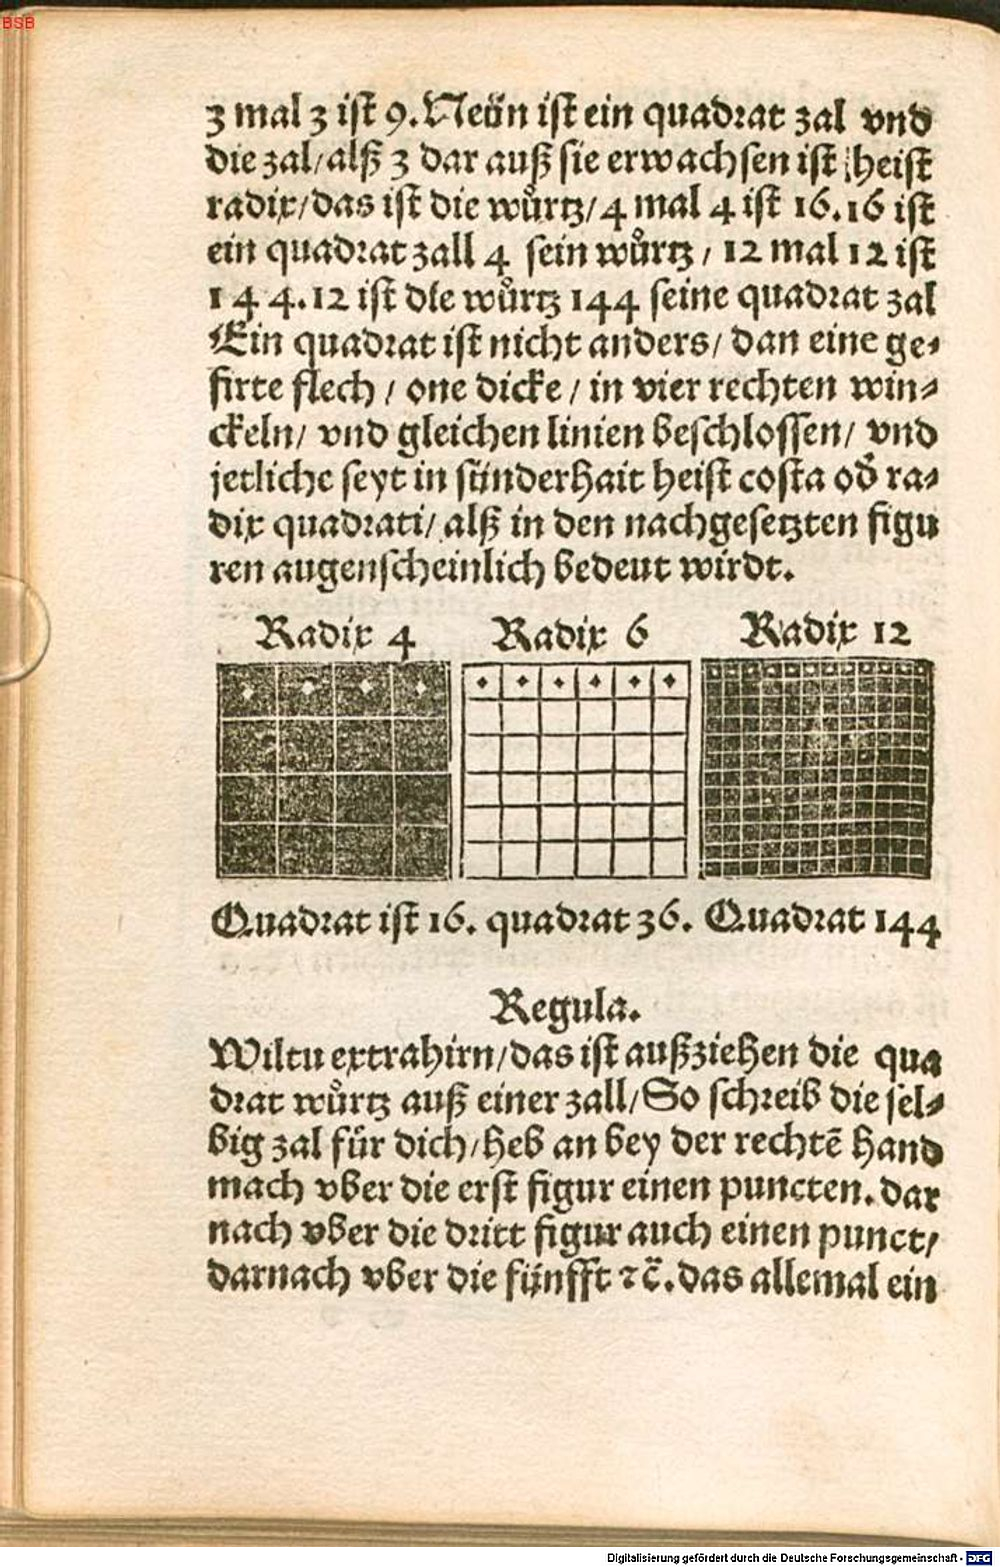 BSB
3 mal 3 ist 9. Neün ist ein quadrat zal vnd
die zal/ alß 3 dar auß sie erwachsen ist / heist
radix/ das ist die wůrtz/ 4 mal 4 ist 16. 16 ist
ein quadrat zall 4 sein wůrtz / 12 mal 12 ist
144. 12 ist die wůrtz 144 seine quadrat zal
Ein quadrat ist nicht anders/ dan eine ge⸗
firte flech / one dicke / in vier rechten win⸗
ckeln/ vnd gleichen linien beschlossen/ vnd
jetliche seyt in sünderhait heist costa od̕ ra⸗
dix quadrati/ alß in den nachgesetzten figu
ren augenscheinlich bedeut wirdt.
Radix 4 Radix 6 Radix 12
Quadrat ist 16. quadrat 36. Quadrat 144
Regula.
Wiltu extrahirn/ das ist außziehen die qua
drat wůrtz auß einer zall/ So schreib die sel⸗
big zal für dich/ heb an bey der rechtē hand
mach vber die erst figur einen puncten. dar
nach vber die dritt figur auch einen punct/
darnach vber die fünfft ⁊c̄. das allemal ein
Digitalisierung gefördert durch die Deutsche Forschungsgemeinschaft - DFG